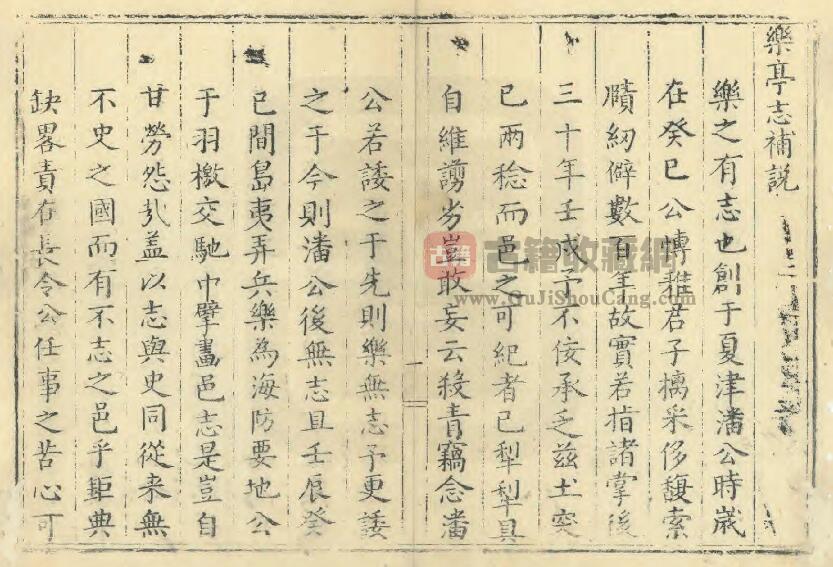 樂亭志補説
樂之有志也創于夏津潘公時嵗
在癸巳公愽雅君子摛采侈馥索
賾紉僻數百年故實若指諸掌後
三十年壬戌予不佞承乏兹土突
已兩稔而邑之可紀者已犁犁具
自維謭劣豈敢妄云殺青竊念潘
公若諉之于先則樂無志予更諉
之于今則潘公後無志且壬辰癸
已間島夷弄兵樂為海防要地公
于羽檄交馳中擘畫邑志是豈自
甘勞怨㢤盖以志與史同從来無
不史之國而有不志之邑乎鉅典
缺畧責在長令公任事之苦心可
古籍
古籍收藏網
www.GuJiShouCang.com